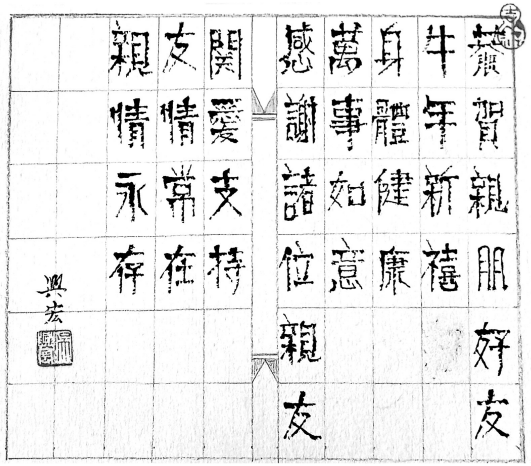 恭賀親朋好友
牛年新禧
身體健康
萬事如意
感謝諸位親友
關愛支持
友情常在
親情永存
興宏